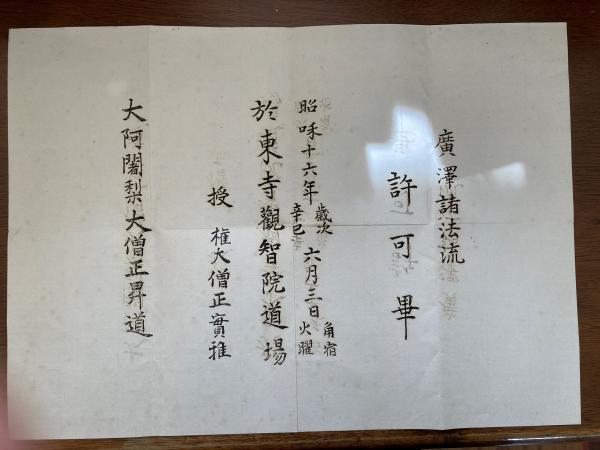 廣澤諸法流
許可畢
昭咊十六年歲次辛巳六月三日角宿火曜
於東寺觀智院道場
授權大僧正實雅
大阿闍梨大僧正昇道